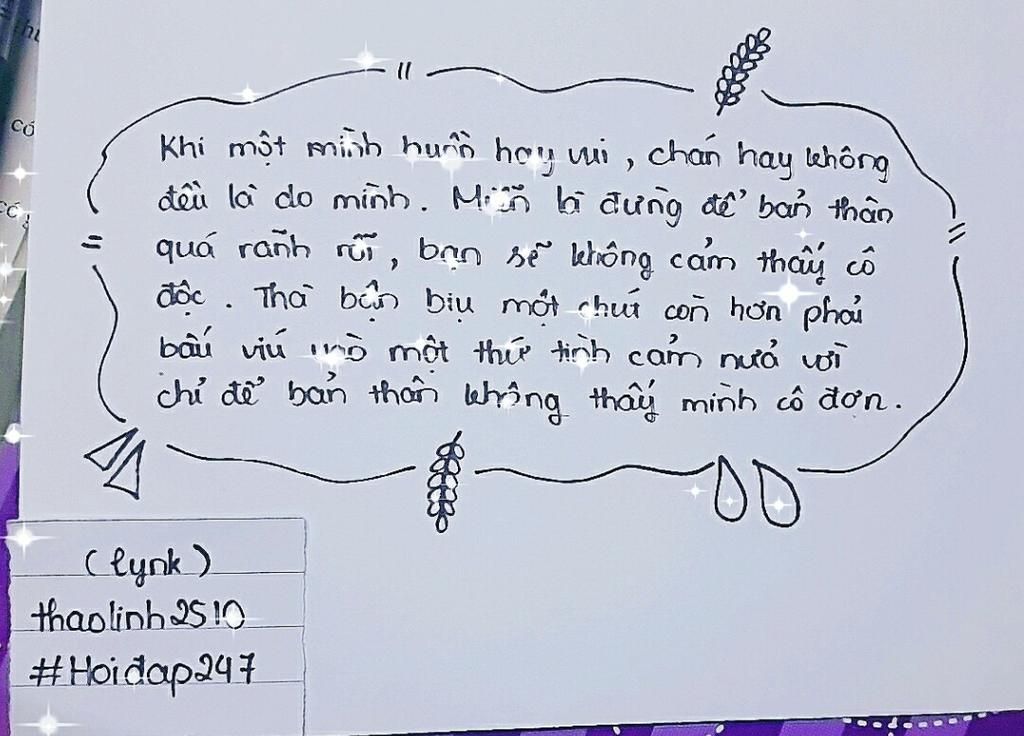 Khi một mình buồn hay vui, chán hay không
đều là do mình. Miễn là đừng để bản thân
quá rảnh rỗi, bạn sẽ không cảm thấy cô
độc. Thà bận bịu một chút còn hơn phải
bấu víu vào một thứ tình cảm nửa vời
chỉ để bản thân không thấy mình cô đơn.
(lynk)
thaolinh2510
#Hoidap247